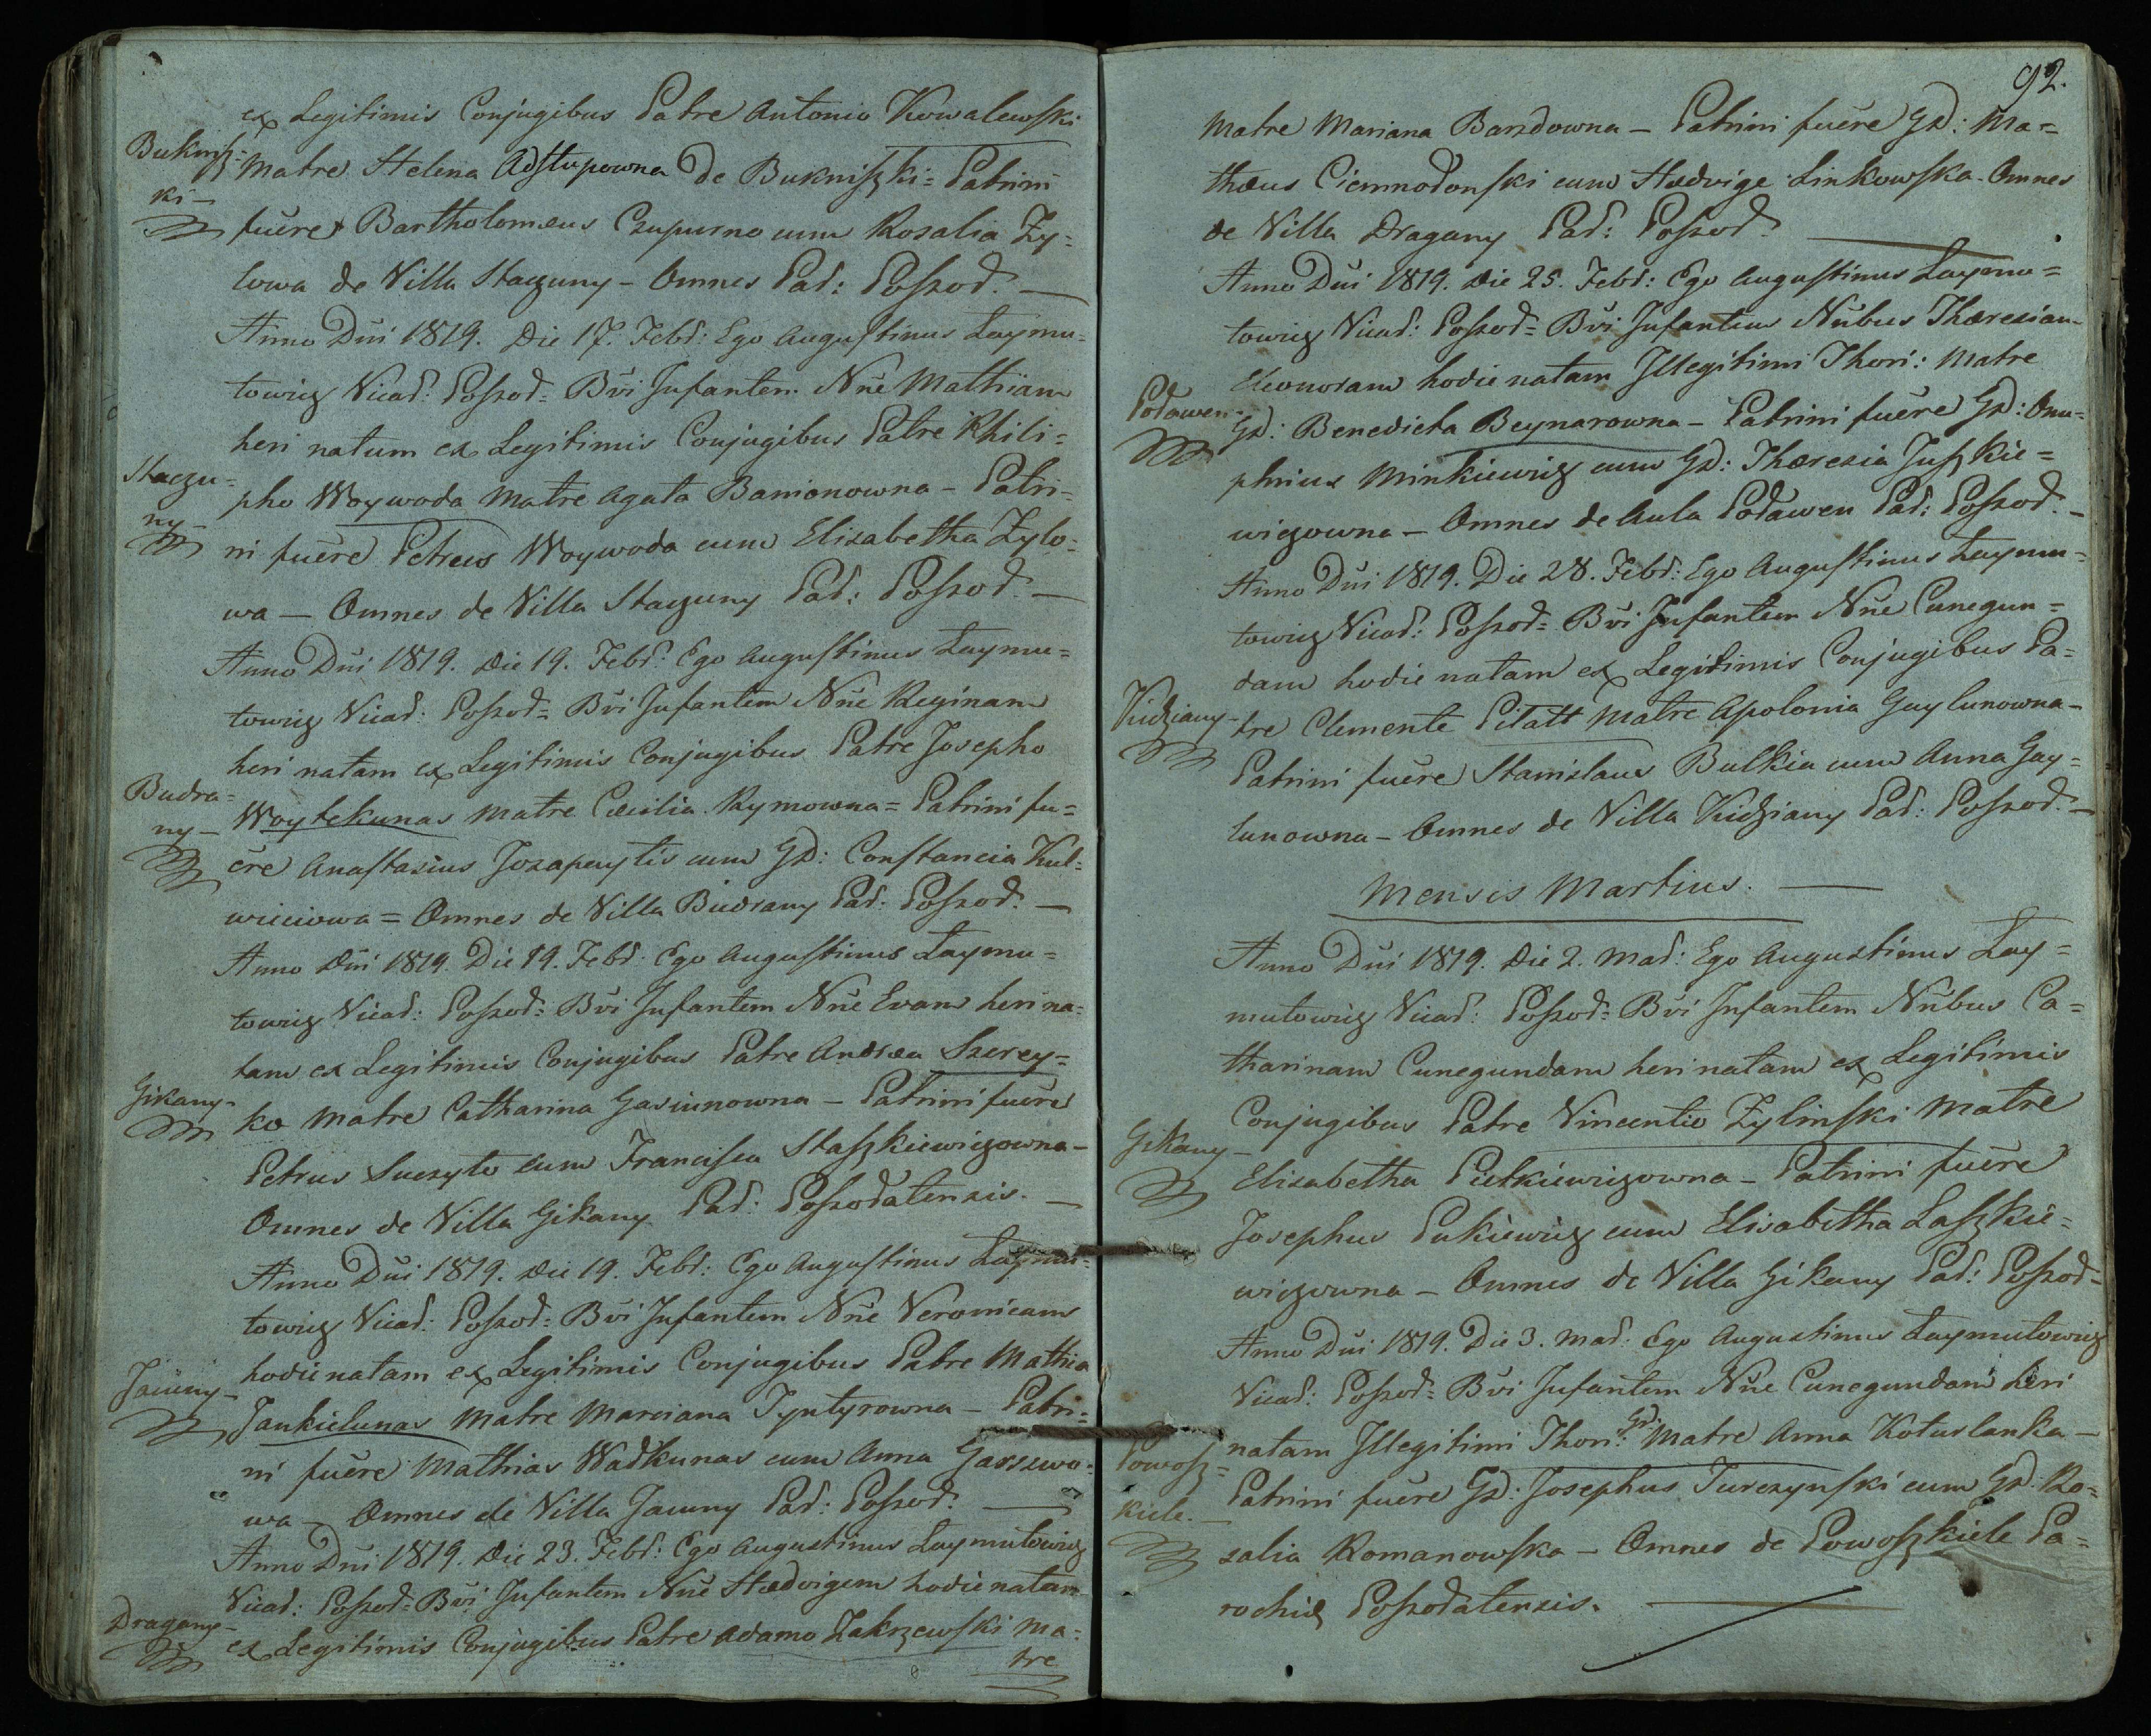 ex Legitimis Conjugibus Patre Antonio Kowalewski
Buknisz=
ki-
Matre Helena Adstupowna De Bukniszki= Patrini
fuere Bartholomæus Czupurno cum Rosalia Zy=
lowa de Villa Staczuny - Omnes Par: Poszod. —
Anno Dni 1819. Die 17. Febr: Ego Augustinus Laymu=
towicz Vicar: Poszod= Bvi Infantem Nne Mathiam
heri natum ex Legitimis Conjugibus Patre Phili=
Staczu=
ny-
pho Woywoda Matre Agata Banionowna - Patri=
ni fuere Petrus Woywoda cum Elisabetha Zylo=
wa — Omnes de Villa Staczuny Par: Poszod. —
Anno Dni 1819. Die 19. Febr: Ego Augustinus Laymu=
towicz Vicar: Poszod= Bvi Infantem Nne Reginam
heri natam ex Legitimis Conjugibus Patre Josepho
Budra=
ny-
Woytekunas Matre Cæcilia Rymowna = Patrini fu=
ere Anastasius Jozapaytis cum Gd: Constancia Kul=
wiciowa = Omnes de Villa Budrany Par: Poszod. —
Anno Dni 1819. Die 19. Febr. Ego Augustinus Laymu=
towicz Vicar: Poszod= Bvi Infantem Nne Evam heri na=
tam ex Legitimis Conjugibus Patre Andrea Szerey=
Gikany-
ko Matre Catharina Gasiunowna - Patrini fuere
Petrus Suczyto cum Francisca Staszkiewiczowna -
Omnes de Villa Gikany Par: Poszodatensis. —
Anno Dni 1819. Die 19. Febr: Ego Augustinus Laymu=
towicz Vicar: Poszod= Bvi Infantem Nne Veronicam
hodie natam ex Legitimis Conjugibus Patre Mathia
Jauny-
Jankielunas Matre Marciana Tyntyrowna - Patri=
ni fuere Mathias Wadkunas cum Anna Garszwo=
wa - Omnes de Villa Jauny Par: Poszod. —
Anno Dni 1819. Die 23. Febr: Ego Augustinus Laymutowicz
Vicar: Poszod= Bvi Infantem Nne Hædvigem hodie natam
Dragany-
ex Legitimis Conjugibus Patre Adamo Zakrzewski Ma=
tre
92.
Matre Mariana Barzdowna - Patrini fuere Gd: Ma=
thæus Ciemnodonski cum Hædvige Linkowska. Omnes
de Villa Dragany Par: Poszod. —
Anno Dni 1819. Die 25. Febr: Ego Augustinus Laymu=
towicz Vicar: Poszod= Bvi Infantem Nnbus Thæresiam
Eleonoram hodie natam Illegitimi Thori: Matre
Podawen-
Gd: Benedicta Beynarowna - Patrini fuere Gd: Onu=
phrius Minkiewicz cum Gd: Thæresia Juszkie=
wiczowna - Omnes de Aula Podawen Par: Poszod. -
Anno Dni 1819. Die 28. Febr: Ego Augustinus Laymu=
towicz Vicar: Poszod= Bvi Infantem Nne Cunegun=
dam hodie natam ex Legitimis Conjugibus Pa=
Kidziany-
tre Clemente Pitatt Matre Apolonia Gaylunowna -
Patrini fuere Stanislaus Bulkia cum Anna Gay=
lunowna - Omnes de Villa Kidziany Par: Poszod. -
Mensis Martius. —
Anno Dni 1819. Die 2. Mar: Ego Augustinus Lay=
mutowicz Vicar: Poszod= Bvi Infantem Nnbus Ca=
tharinam Cunegundam heri natam ex Legitimis
Conjugibus Patre Vincentio Zylinski Matre
Gikany-
Elisabetha Pietkiewiczowna - Patrini fuere
Josephus Pukiewicz cum Elisabetha Laszkie=
wiczowna - Omnes de Villa Gikany Par: Poszod-
Anno Dni 1819. Die 3. Mar: Ego Augustinus Laymutowicz
Vicar: Poszod= Bvi Infantem Nne Cunegundam heri
Powosz=
kiele.
natam Illegitimi Thori: Gd: Matre Anna Kotuslanka -
Patrini fuere Gd: Josephus Turczynski cum Gd: Ro=
salia Romanowska - Omnes de Powoszkiele Pa=
rochiæ Poszodatensis. —